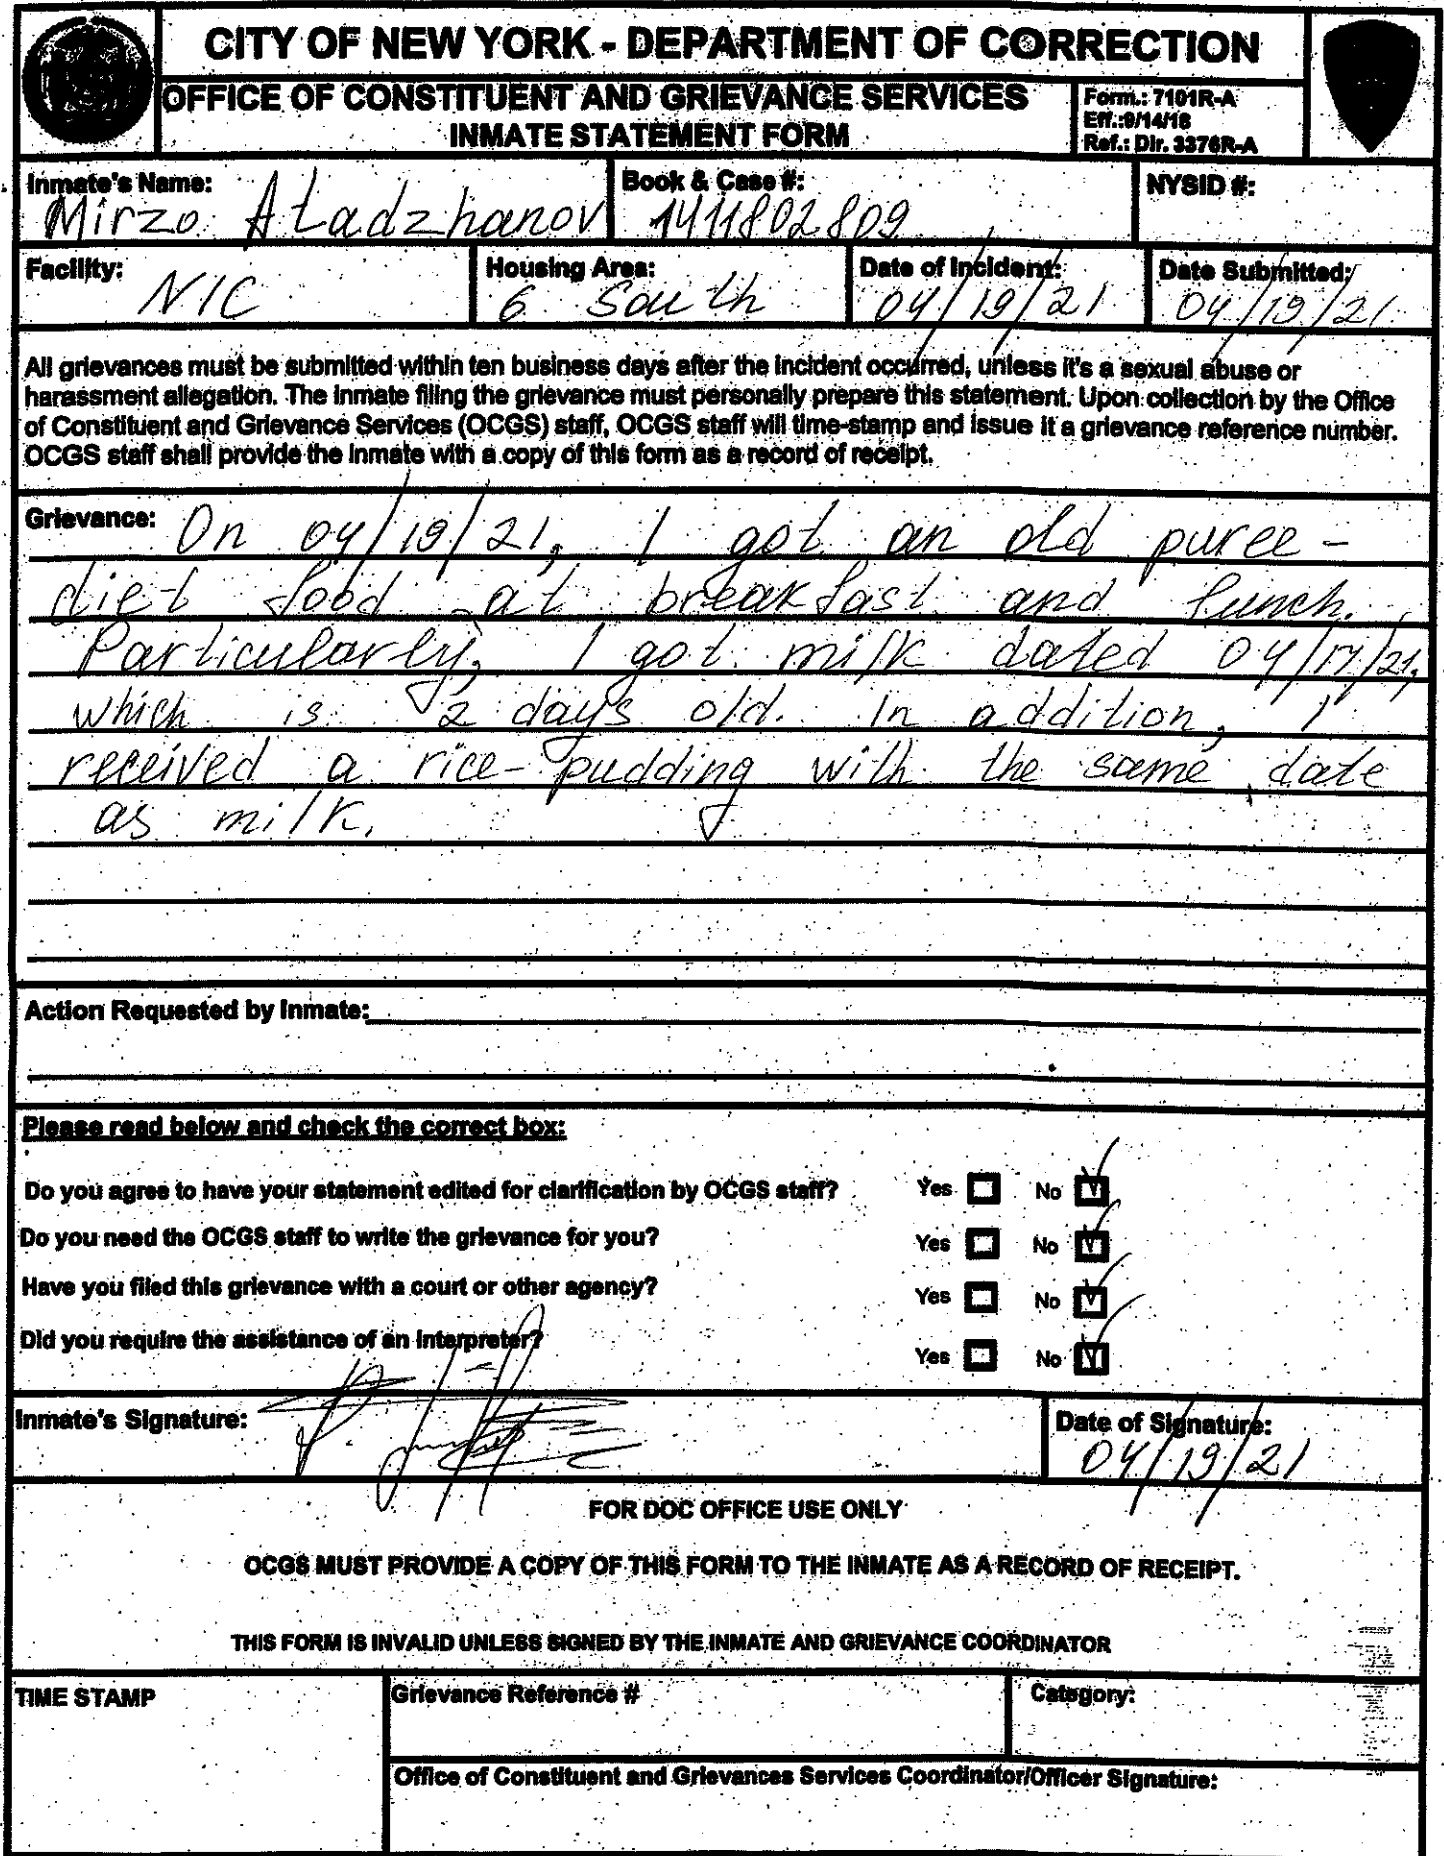 CITY OF NEW YORK - DEPARTMENT OF CORRECTION
OFFICE OF CONSTITUENT AND GRIEVANCE SERVICES
INMATE STATEMENT FORM
Form.: 7101R-A
Eff.:9/14/18
Ref.: Dir. 3376R-A
Inmate's Name:
Mirzo Atadzhanov
Book & Case #:
1411802809
NYSID #:
Facility:
NIC
Housing Area:
6 South
Date of Incident:
04/19/21
Date Submitted:
04/19/21
All grievances must be submitted within ten business days after the incident occurred, unless it's a sexual abuse or
harassment allegation. The inmate filing the grievance must personally prepare this statement. Upon collection by the Office
of Constituent and Grievance Services (OCGS) staff, OCGS staff will time-stamp and issue it a grievance reference number.
OCGS staff shall provide the inmate with a copy of this form as a record of receipt.
Grievance: On 04/19/21, I got an old puree-
diet food at breakfast and lunch.
Particularly, I got milk dated 04/17/21,
which is 2 days old. In addition, I
received a rice-pudding with the same date
as milk.
Action Requested by Inmate:
Please read below and check the correct box:
Do you agree to have your statement edited for clarification by OCGS staff? Yes No
Do you need the OCGS staff to write the grievance for you? Yes No
Have you filed this grievance with a court or other agency? Yes No
Did you require the assistance of an interpreter? Yes No
Inmate's Signature:
Date of Signature:
04/19/21
FOR DOC OFFICE USE ONLY
OCGS MUST PROVIDE A COPY OF THIS FORM TO THE INMATE AS A RECORD OF RECEIPT.
THIS FORM IS INVALID UNLESS SIGNED BY THE INMATE AND GRIEVANCE COORDINATOR
TIME STAMP
Grievance Reference #
Category:
Office of Constituent and Grievances Services Coordinator/Officer Signature: